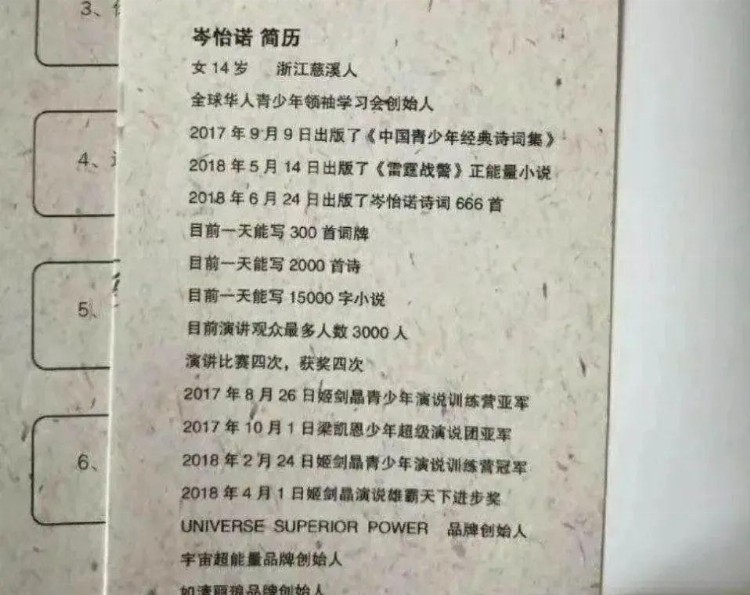 3、
4、
5、
6、
岑怡诺 简历
女 14 岁 浙江慈溪人
全球华人青少年领袖学习会创始人
2017 年 9 月 9 日出版了《中国青少年经典诗词集》
2018 年 5 月 14 日出版了《雷霆战警》正能量小说
2018 年 6 月 24 日出版了岑怡诺诗词 666 首
目前一天能写 300 首词牌
目前一天能写 2000 首诗
目前一天能写 15000 字小说
目前演讲观众最多人数 3000 人
演讲比赛四次，获奖四次
2017 年 8 月 26 日姬剑晶青少年演说训练营亚军
2017 年 10 月 1 日梁凯恩少年超级演说团亚军
2018 年 2 月 24 日姬剑晶青少年演说训练营冠军
2018 年 4 月 1 日姬剑晶演说雄霸天下进步奖
UNIVERSE SUPERIOR POWER 品牌创始人
宇宙超能量品牌创始人
如清丽琅品牌创始人